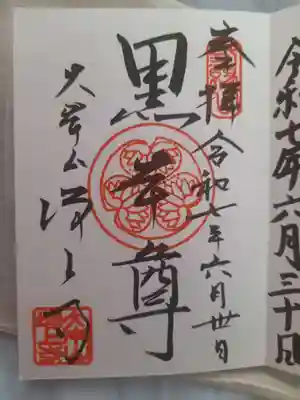 令和七年六月三十日
奉拝 令和七年六月卅日
黒本尊
大本山 増上寺